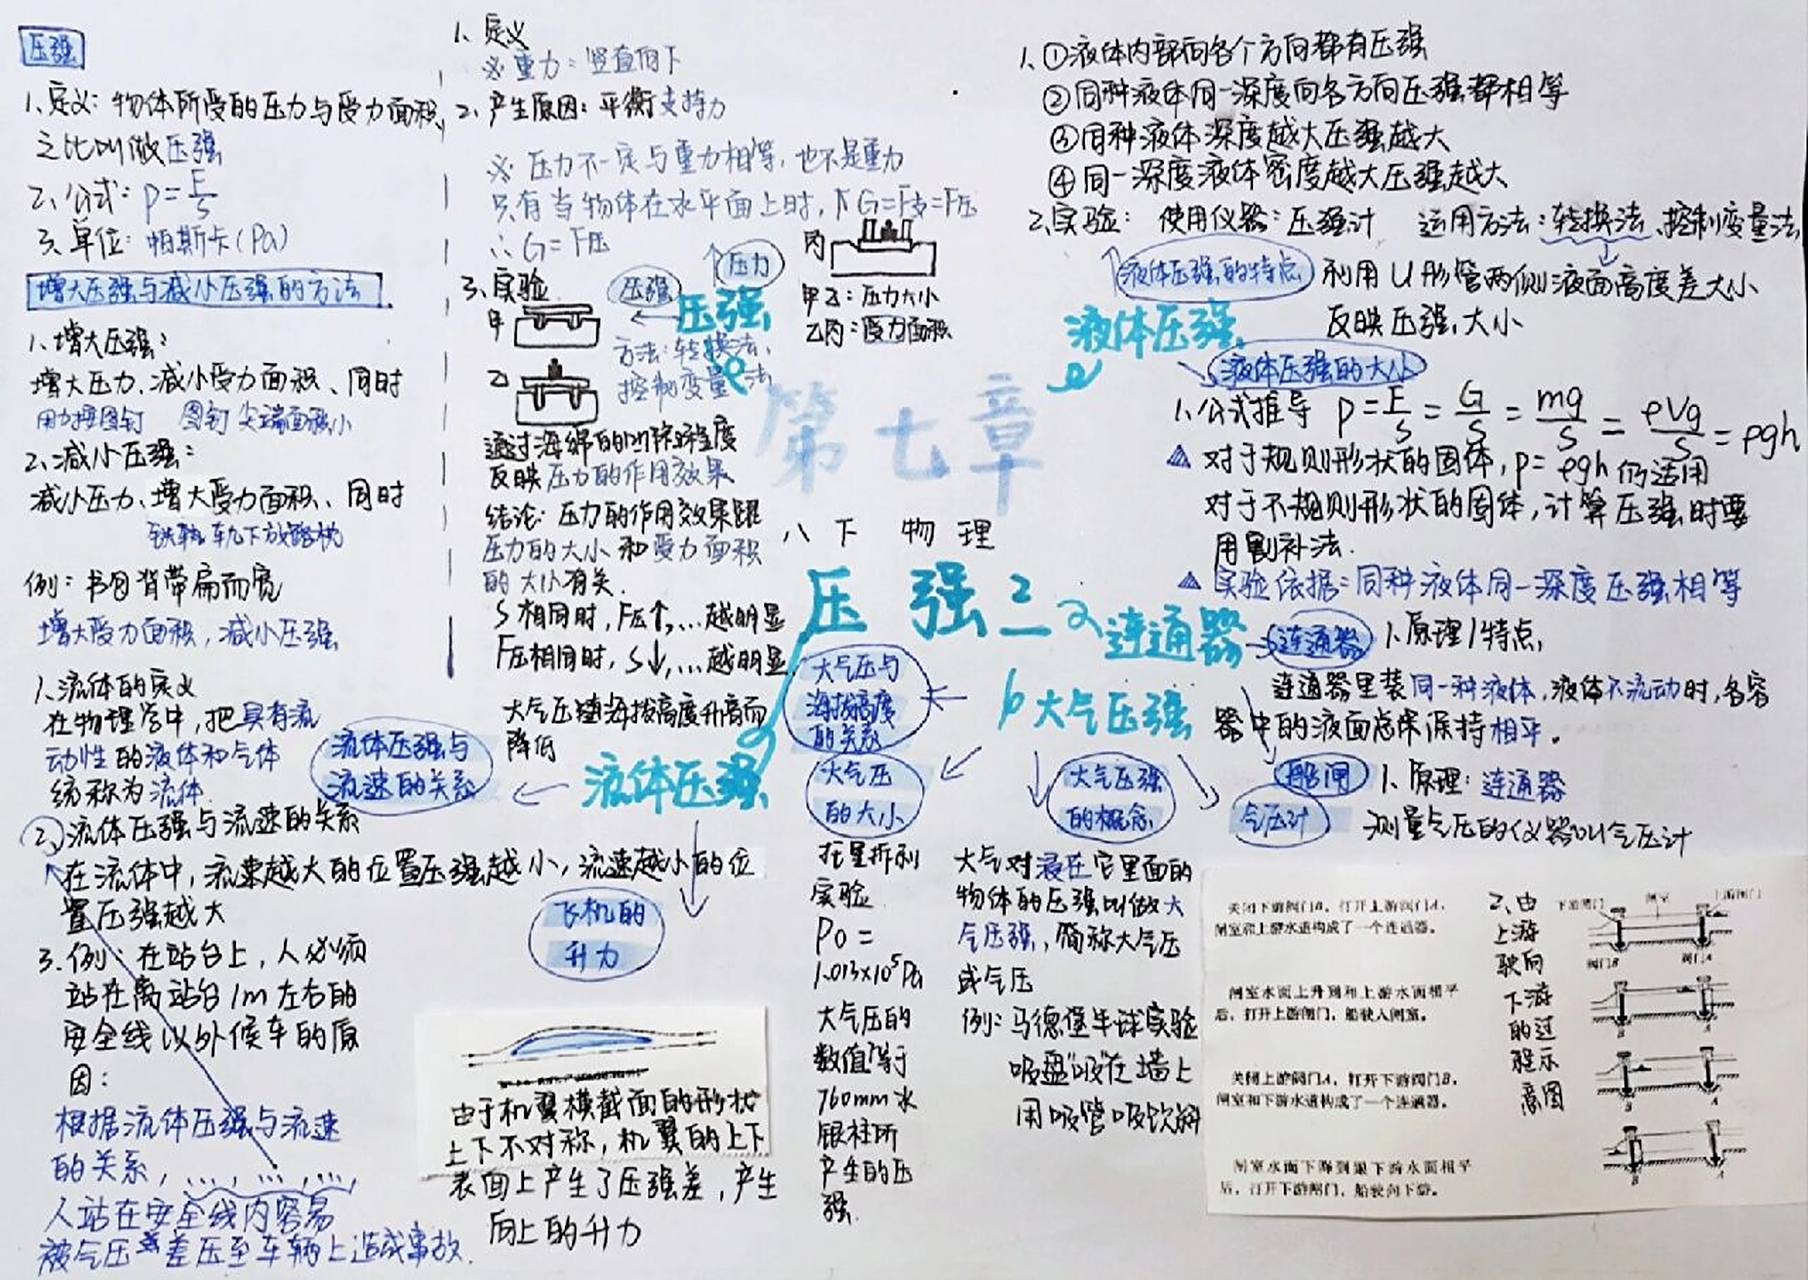 压强
1、定义：物体所受的压力与受力面积
之比叫做压强
2、公式：P=F/S
3、单位：帕斯卡(Pa)
增大压强与减小压强的方法
1、增大压强：
增大压力、减小受力面积、同时
用力按图钉 图钉尖端面积小
2、减小压强：
减小压力、增大受力面积、同时
铁轨下放路枕
例：书包背带扁而宽
增大受力面积，减小压强
1、定义
※重力：竖直向下
2、产生原因：平衡支持力
※压力不一定与重力相等，也不是重力
只有当物体在水平面上时，G=F支=F压
∴G=F压
3、实验
甲
乙
丙
甲乙：压力大小
乙丙：受力面积
压强
压力
压强
方法：转换法、
控制变量法
通过海绵的凹陷程度
反映压力的作用效果
结论：压力的作用效果跟
压力的大小和受力面积
的大小有关.
S相同时，F压↑，…越明显
F压相同时，S↓，…越明显
第七章
八下 物理
压强
1、①液体内部向各个方向都有压强
②同种液体同一深度向各方向压强都相等
③同种液体深度越大压强越大
④同一深度液体密度越大压强越大
2、实验： 使用仪器：压强计 运用方法：转换法、控制变量法
液体压强的特点
利用U形管两侧液面高度差大小
反映压强大小
液体压强
液体压强的大小
1、公式推导 P=F/S=G/S=mg/S=ρVg/S=ρgh
△对于规则形状的固体，p=ρgh仍适用
对于不规则形状的固体，计算压强时要
用割补法.
△实验依据：同种液体同一深度压强相等
连通器
连通器
1、原理/特点，
连通器里装同一种液体，液体不流动时，各容
器中的液面总保保持相平。
船闸
1、原理：连通器
气压计
测量气压的仪器叫气压计
大气压强
大气压与
海拔高度
的关系
大气压随海拔高度升高而
降低
大气压
的大小
托里拆利
实验
P0=
1.013×10⁵Pa
大气压的
数值等于
760mm水
银柱所
产生的压
强.
大气压强
的概念
大气对浸在它里面的
物体的压强叫做大
气压强，简称大气压
或气压
例：马德堡半球实验
吸盘“吸”在墙上
用吸管吸饮料
流体压强
流体压强与
流速的关系
1、流体的定义
在物理学中，把具有流
动性的液体和气体
统称为流体
2、流体压强与流速的关系
在流体中，流速越大的位置压强越小，流速越小的位
置压强越大
3、例：在站台上，人必须
站在离站台1m左右的
安全线以外候车的原
因：
根据流体压强与流速
的关系，…，…，…，
人站在安全线内容易
被气压差压至车辆上造成事故.
飞机的
升力
由于机翼横截面的形状
上下不对称，机翼的上下
表面上产生了压强差，产生
向上的升力
关闭下游阀门B，打开上游阀门A，
闸室和上游水道构成了一个连通器。
闸室水面上升到和上游水面相平
后，打开上游闸门，船驶入闸室。
关闭上游阀门A，打开下游阀门B，
闸室和下游水道构成了一个连通器。
闸室水面下降到跟下游水面相平
后，打开下游闸门，船驶向下游。
2、由
上游
驶向
下游
的过
程示
意图
下游闸门 闸室 上游闸门
阀门B 阀门A
B A
B A
B A